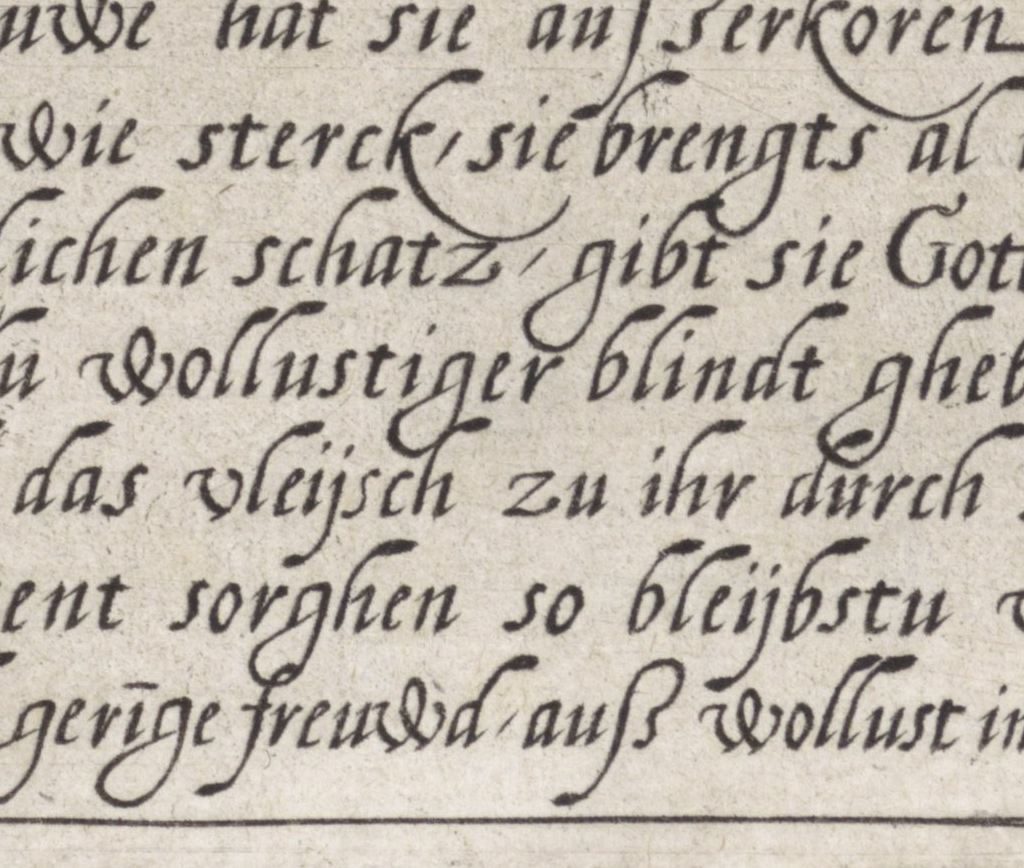 uwe hat sie außerkoren
wie sterck, sie brengts al
lichen schatz, gibt sie Gott
wollustiger blindt gheb
das vleijsch zu ihr durch
ent sorghen so bleijbstu
gerīge freuwd, auß wollust in